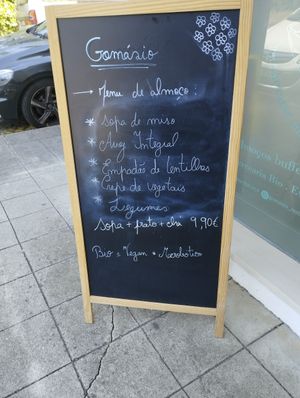 Gomásio
→ Menu de almoço:
* Sopa de miso
* Arroz Integral
* Empadão de lentilhas
* Crepe de vegetais
* Legumes
Sopa + prato + chá 9,90€
Bio + Vegan + Macrobiótico